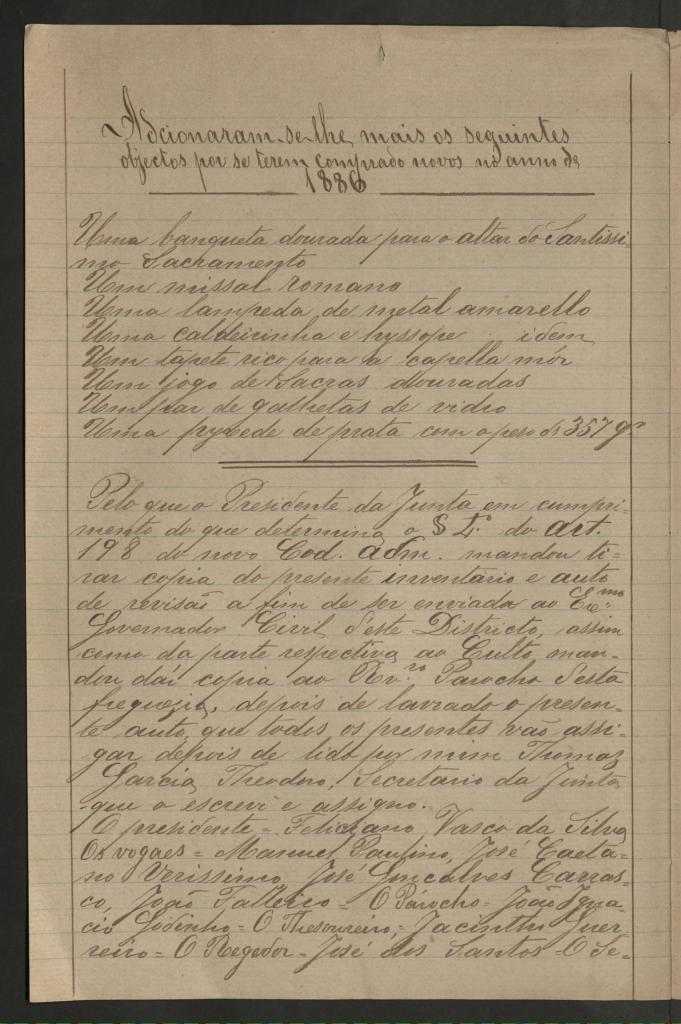 Adcionaram-se-lhe mais os seguintes
objectos por se terem comprado novos no anno de
1886
Uma banqueta dourada para o altar do Santissi-
mo Sacramento
Um missal romano
Uma lampeda de metal amarello
Uma caldeirinha e hyssope idem
Um tapete rico para a capella mór
Um jogo de Sacras douradas
Um par de galhetas de vidro
Uma pyxede de prata com o peso de 357 gr
Pelo que o Presidente da Junta em cumpri-
mento do que determina o § 4º do art.
198 do novo Cod. adm. mandou ti-
rar copia do presente inventário e auto
de revisão a fim de ser enviada ao Exmo
Governador Civil d'este Districto, assim
como da parte respectiva ao Culto man-
dou dar copia ao Rv.ro Parocho desta
freguezia, depois de lavrado o presen-
te auto, que todos os presentes vão assi-
gar depois de lido por mim Thomaz
Garcia Theodoro, Secretario da Junta
que o escrevi e assigno.
O presidente = Feliciano Vasco da Silva
Os vogaes = Manuel Paulino, José Caeta-
no Verissimo, José Gonçalves Carras-
co, João Falleiro = O Párocho = João Igna-
cio Godinho = O Thesoureiro, = Jacintho Guer-
reiro = O Regedor = José dos Santos = O Se-